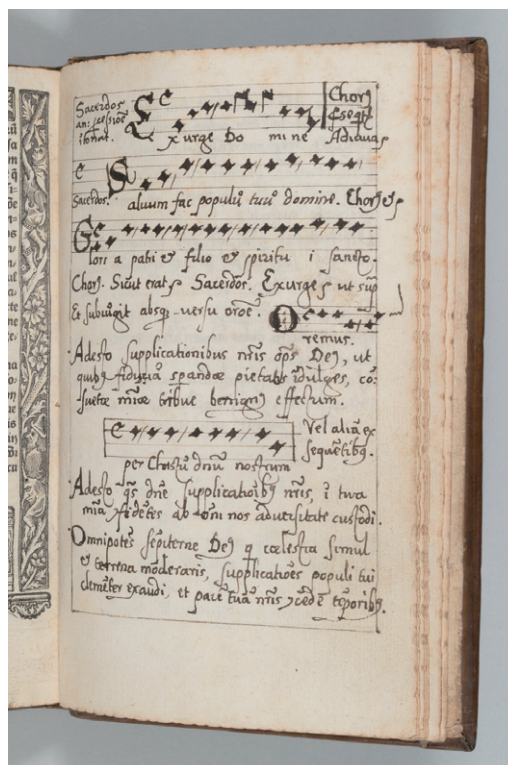 Sacerdos Chorꝯ
an: sioẽ seqt̃
itonat.
Exurge Domine Adiuua
Sacerdos. Saluum fac populũ tuũ domine. Chorꝯ
Gloria patri et filio et spiritu i sancto.
Chorꝯ. Sicut erat Sacerdos. Exurge ut sup̃
Et subiũgit absqꝫ versu oroẽ. Oremus.
Adesto supplicationibus nr̃is op̃s Deꝯ, ut
quibꝯ fiduciã sperandæ pietatis ĩdulges, cõ:
suetæ mĩæ tribue benignꝯ effectum.
Vel aliã ex
sequẽtibꝯ.
per Christũ dñm nostrum
Adesto q̃s dñe supplicatiõibꝯ nr̃is, ĩ tua
mĩa fidẽtes ab oĩ nos aduersitate custodi.
Omnipotẽs sẽpiterne Deꝯ q cœlestia simul
et terrena moderaris, supplicatiões populi tui
clemẽter exaudi, et pacẽ tuã nr̃is ɔcede tẽporibꝯ.